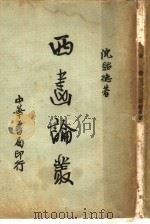 沈紹德著
西畫論叢
中華書局印行